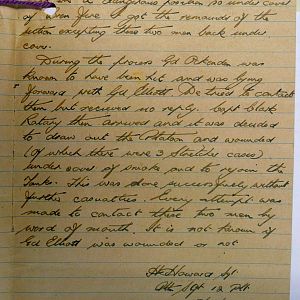 a dangerous position so under cover
of when fire I got the remainder of the
section excepting these two men back under
cover.
During the process Gd Arkendon was
known to have been hit and was lying
forward with Gd Elliott. We tried to contact
them but received no reply. Capt Black
Rotary then arrived and it was decided
to draw out the Platoon and wounded
(of which there were 3 stretcher cases)
under cover of smoke and to rejoin the
Tanks. This was done successfully without
further casualties. Every attempt was
made to contact these two men by
word of mouth. It is not known if
Gd Elliott was wounded or not
Howard Sgt
Sgt 12 Plt